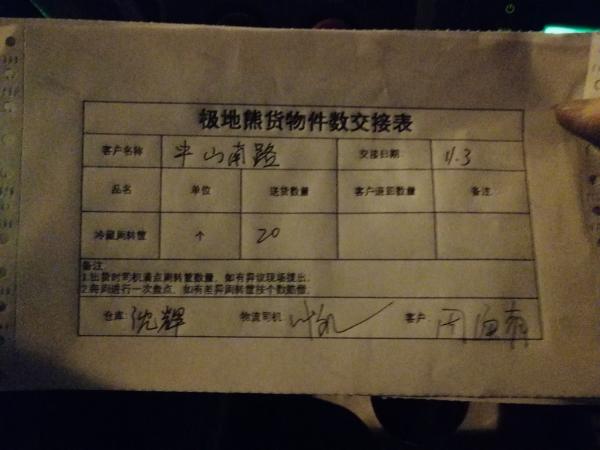 极地熊货物件数交接表
客户名称 半山南路 交接日期 11.3
品名 单位 送货数量 客户退回数量 备注
冷藏周转筐 个 20
备注
1.出货时司机清点周转筐数量，如有异议现场提出.
2.每周进行一次盘点，如有差异周转筐按个数赔偿.
仓库: 沈辉 物流司机: 客户: 周